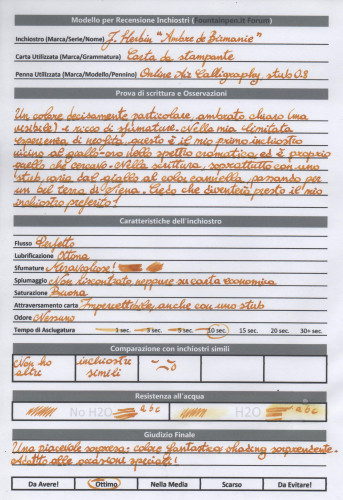 Modello per Recensione Inchiostri (fountainpen.it Forum)
Inchiostro (Marca/Serie/Nome) J. Herbin "Ambre de Birmanie"
Carta Utilizzata (Marca/Grammatura) Carta da stampante
Penna Utilizzata (Marca/Modello/Pennino) Online Air Calligraphy, stub 0.8
Prova di scrittura e Osservazioni
Un colore decisamente particolare, ambrato chiaro (ma
visibile) e ricco di sfumature. Nella mia limitata
esperienza di neofita, questo è il mio primo inchiostro
vicino al giallo-oro dello spettro cromatico ed è proprio
quello che cercavo. Nella scrittura, soprattutto con uno
stub, varia dal giallo al color cannella, passando per
un bel terra di Siena. Credo che diventerà presto il mio
inchiostro preferito!
Caratteristiche dell'inchiostro
Flusso Perfetto
Lubrificazione Ottima
Sfumature Meravigliose!
Spiumaggio Non riscontrato neppure su carta economica
Saturazione Buona
Attraversamento carta Impercettibile, anche con uno stub
Odore Nessuno
Tempo di Asciugatura 1 sec. 3 sec. 5 sec. 10 sec. 15 sec. 20 sec. 30+ sec.
Comparazione con inchiostri simili
Non ho inchiostri
altri simili
Resistenza all'acqua
No H2O abc H2O abc
Giudizio Finale
Una piacevole sorpresa: colore fantastico shading sorprendente.
Adatto alle occasioni speciali!
Da Avere! Ottimo Nella Media Scarso Da Evitare!